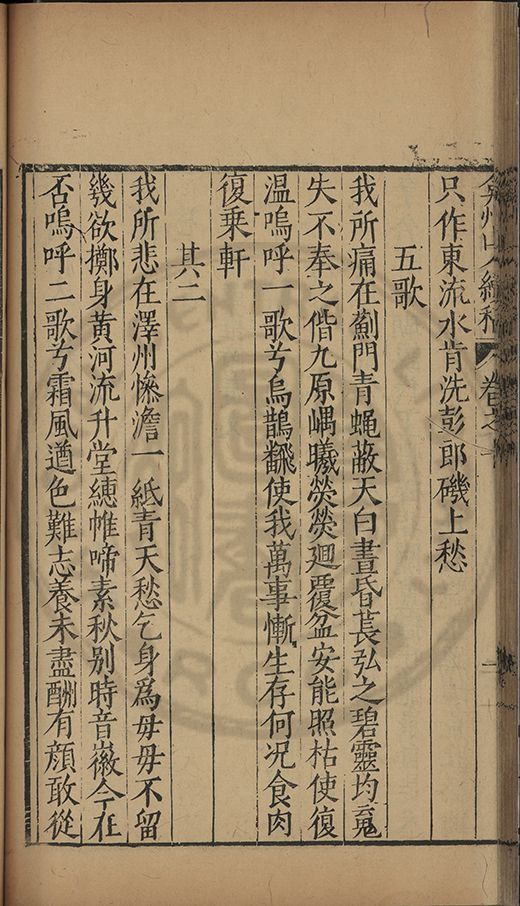 弇州山人續稿 卷之
只作東流水肯洗彭郎磯上愁
五歌
我所痛在薊門青蝿蔽天白晝昏萇弘之碧靈均䰟
失不奉之偕九原嵎曦熒熒廻覆盆安能照枯使復
温嗚呼一歌兮烏鵲飜使我萬事慚生存何况食肉
復乘軒
其二
我所悲在澤州慘澹一紙青天愁乞身爲母母不留
幾欲擲身黄河流升堂繐帷啼素秋别時音徽今在
否嗚呼二歌兮霜風遒色難志養未盡酬有顔敢從